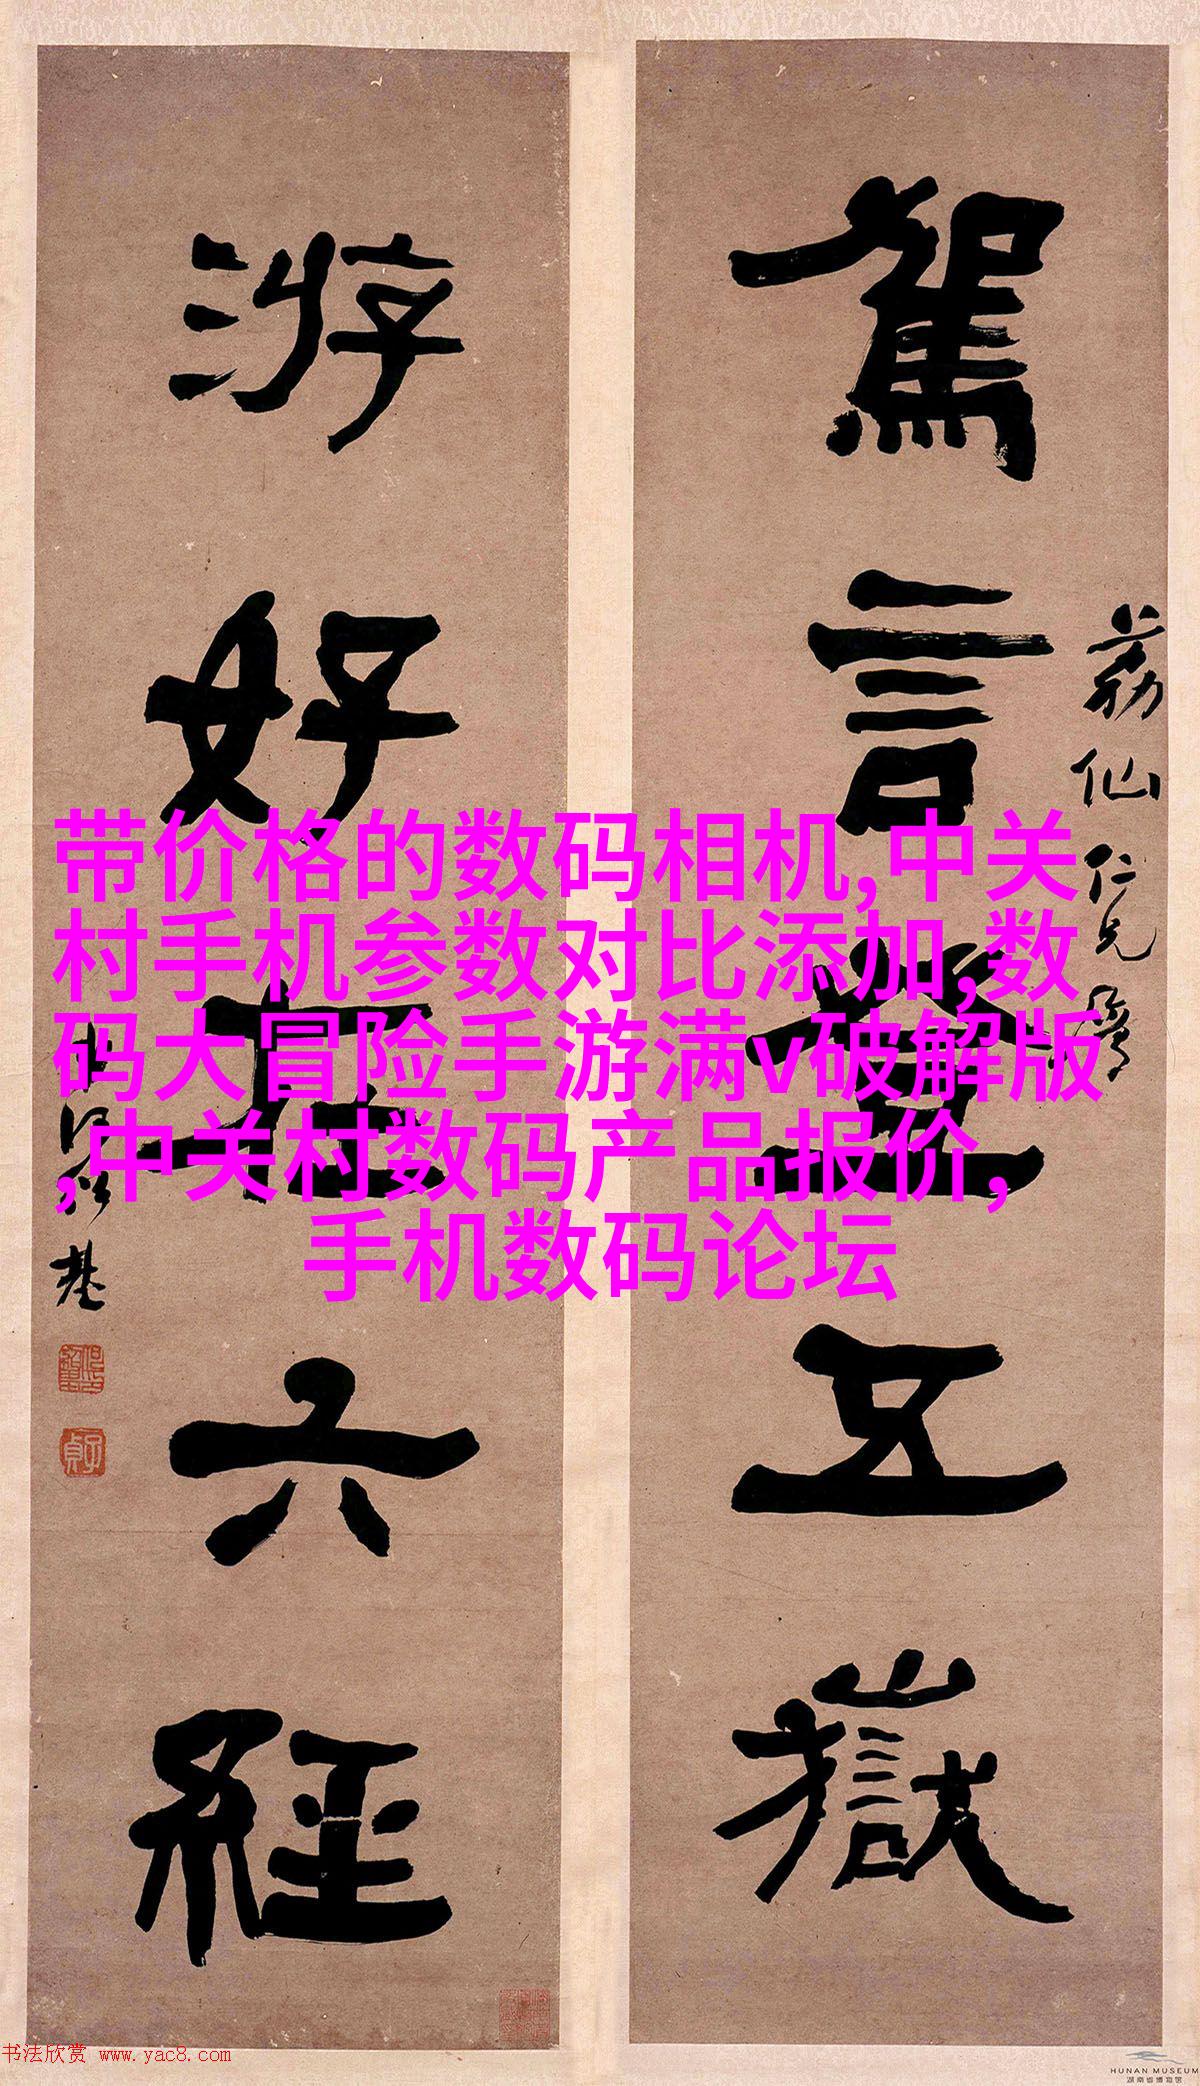 駕言登五嶽
荔仙仁兄屬
游好在六經
何紹基
子貞
带价格的数码相机,中关
村手机参数对比添加,数
码大冒险手游满v破解版
,中关村数码产品报价,
手机数码论坛
书法欣赏 www.yac8.com
HUNAN MUSEUM
湖南省博物馆